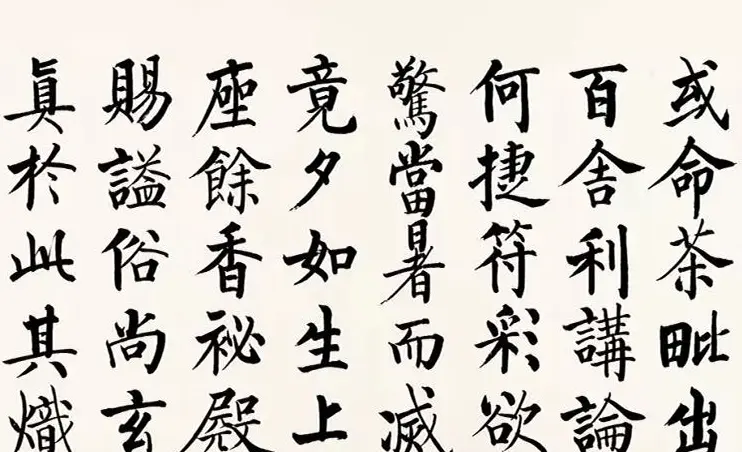 或命荼毗出
百舍利講論
何捷符彩欲
驚當暑而滅
竟夕如生上
座餘香祕殿
賜謚俗尚玄
真於此其熾